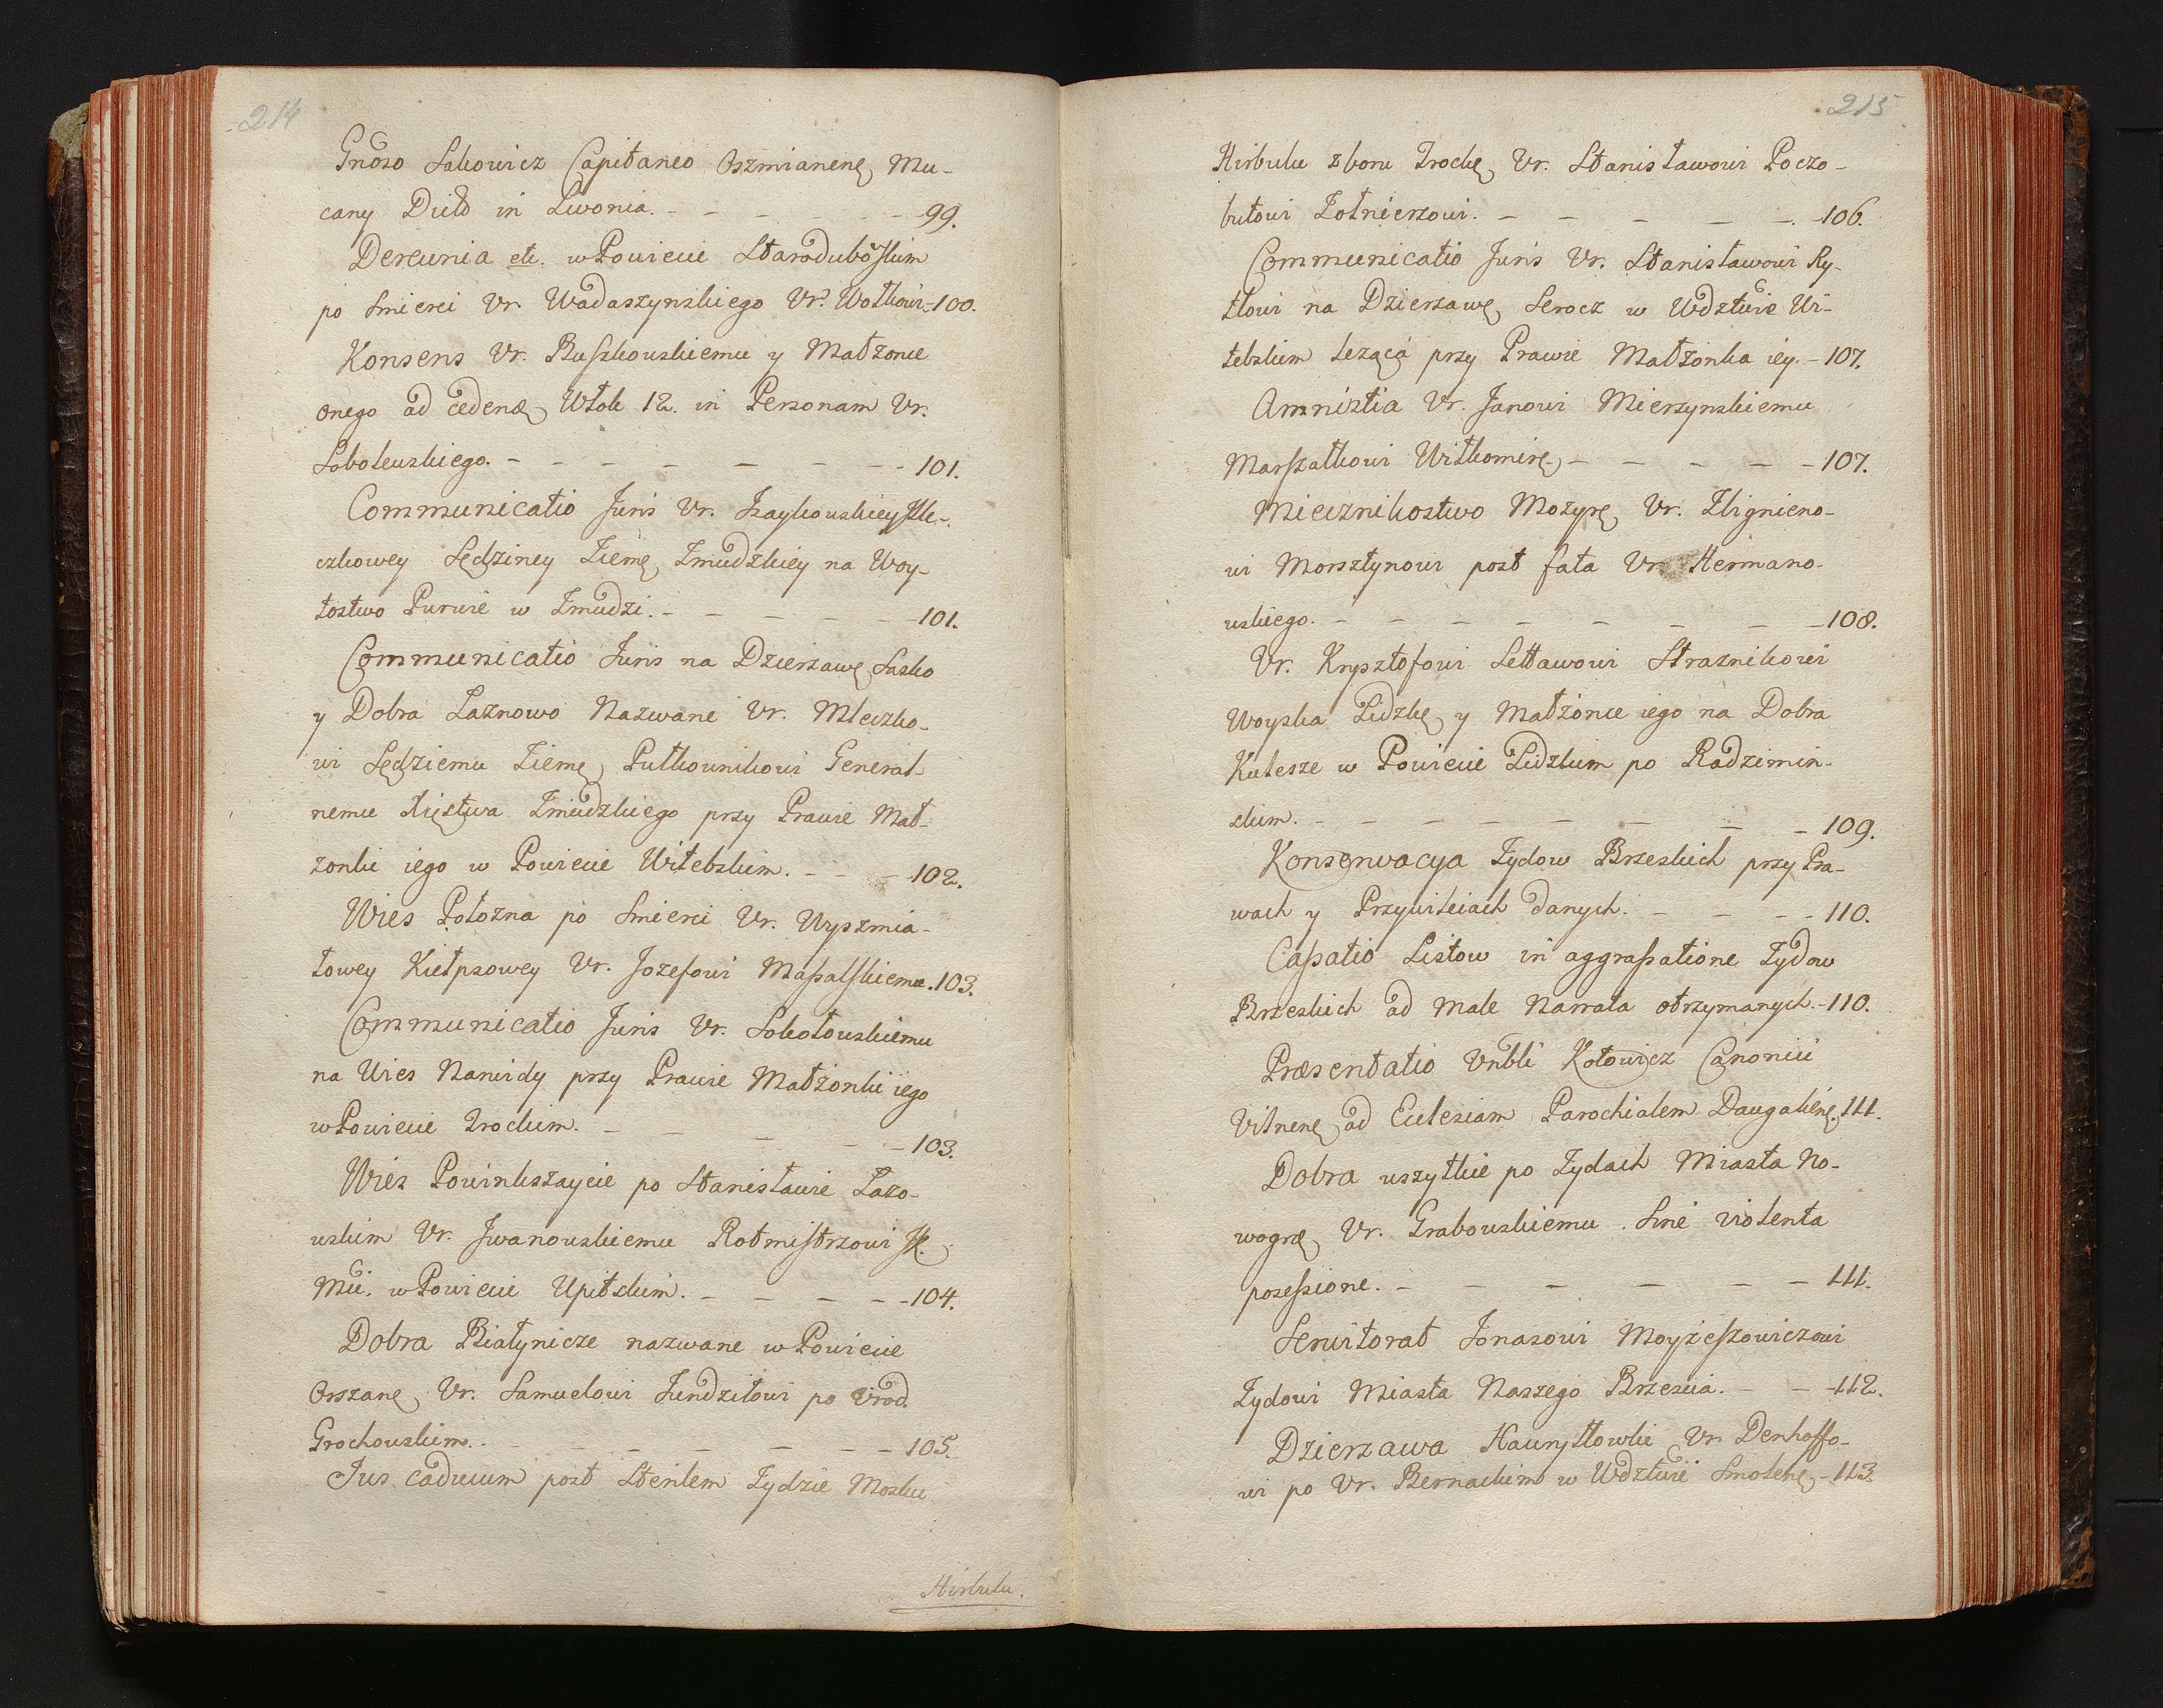 214
Gnoso Sakowicz Capitaneo Oszmianenę Mu-
cany Dictô in Livonia. - - - - - - 99.
Dereunia etc. w Powiecie Starodubôskim
po Smierci Vr. Wadaszynskiego Vr. Wołkowi - 100.
Konsens Vr. Ruszkowskiemu y Małżonce
onego ad cedendę Włok 12. in Personam Vr.
Sobolewskiego. - - - - - - - 101.
Communicatio Juris Vr. Jzaykowskiey
czkowey Sędziney Ziemę Żmudzkiey na Woy-
tostwo Purwie w Żmudzi. - - - - - 101.
Communicatio Juris na Dzierżawę Susko
y Dobra Łaznowo Nazwane Vr. Mleczko-
wi Sędziemu Ziemę Pułkownikowi General-
nemu Xięstwa Żmudzkiego przy Prawie Mał-
zonki iego w Powiecie Witebskim. - - - 102.
Wies Połozna po Smierci Vr. Wyszmia-
towey Kiełpsowey Vr. Jozefowi Massalskiemu. 103.
Communicatio Juris Vr. Sokołowskiemu
na Wies Narwidy przy Prawie Małżonki iego
w Powiecie Trockim. - - - - - 103.
Wies Powinkszaycie po Stanisławie Łazo-
wskim Vr. Jwanowskiemu Rotmistrzowi JK.
Mci. w Powiecie Upitskim. - - - - - 104.
Dobra Białynicze nazwane w Powiecie
Orszanę Vr. Samuelowi Jundziłowi po Vrod.
Grochowskim. - - - - - - - 105.
Jus caducum post Sterilem Żydzie Mosku
Hirbulu.
215
Hirbulu zboru Trockę Vr. Stanisławowi Poczo-
butowi Żołnierzowi. - - - - - - 106.
Communicatio Juris Vr. Stanisławowi Ry-
tlowi na Dzierzawę Serocz w Wdztwie Wi-
tebskim lezącą przy Prawie Małżonka iey. - 107.
Amnistia Vr. Janowi Mierzynskiemu
Marszałkowi Wiłkomirę - - - - - 107.
Miecznikostwo Mozyrę Vr. Zbignieno-
wi Morsztynowi post fata Vr. Hermano-
wskiego. - - - - - - - - 108.
Vr. Krysztofowi Settawowi Straznikowi
Woyska Lidzkę y Małżonce iego na Dobra
Kulesze w Powiecie Lidzkim po Radzimin-
skim. - - - - - - - 109.
Konserwacya Żydow Brzeskich przy Pra-
wach y Przywileiach danych. - - - - 110.
Cassatio Listow in aggrassatione Żydow
Brzeskich ad male Narrata otrzymanych. - 110.
Præsentatio Vnbli Kotowicz Canonici
Vilnenę ad Eulesiam Parochialem Daugalienę. 111.
Dobra wszytkie po Żydach Miasta No-
wogrę Vr. Grabowskiemu. Sine violenta
possessione. - - - - - - 111.
Serwitorat Jonasowi Moyżeszowiczowi
Żydowi Miasta Naszego Brzescia. - - - 112.
Dzierzawa Hawryłłowki Vr. Denhoffo-
wi po Vr. Bernackim w Wdztwie Smolenę - 113.